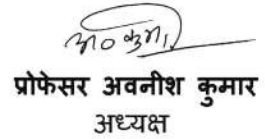 प्रोफेसर अवनीश कुमार
अध्यक्ष